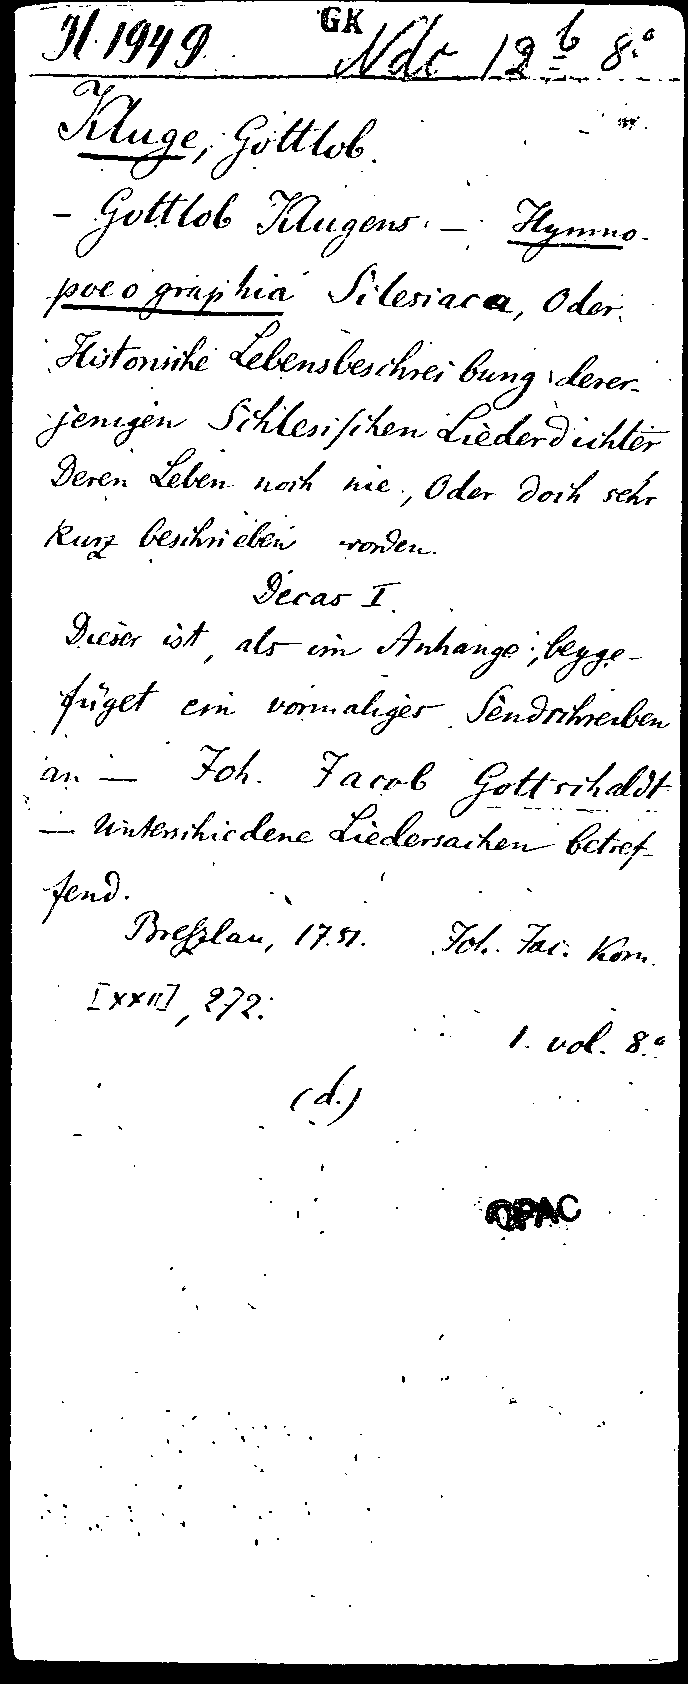 H. 1949. GK Ndc 12 b 8.°
Kluge, Gottlob.
– Gottlob Klugens. – Hymno-
poeographia Silesiaca, Oder
Historische Lebensbeschreibung derer-
jenigen Schlesischen Liederdichter
Deren Leben noch nie, Oder doch sehr
kurz beschrieben worden.
Decas I.
Dieser ist, als im Anhange, beyge-
füget ein vormaliges Sendschreiben
an – Joh. Jacob Gottschaldt
– Unterschiedene Liedersachen betref-
fend.
Breßlau, 1751. Joh. Jac. Korn.
[XXII], 272.
1. vol. 8.°
(d.)
OPAC